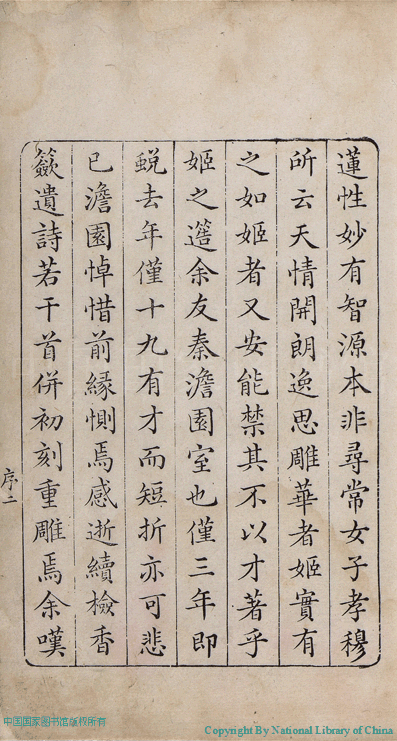 蓮性妙有智源本非尋常女子孝穆
所云天情開朗逸思雕華者姬實有
之如姬者又安能禁其不以才著乎
姬之簉余友秦澹園室也僅三年即
蛻去年僅十九有才而短折亦可悲
已澹園悼惜前緣惻焉感逝續檢香
籢遺詩若干首併初刻重雕焉余嘆
序二
中国国家图书馆版权所有
Copyright By National Library of China